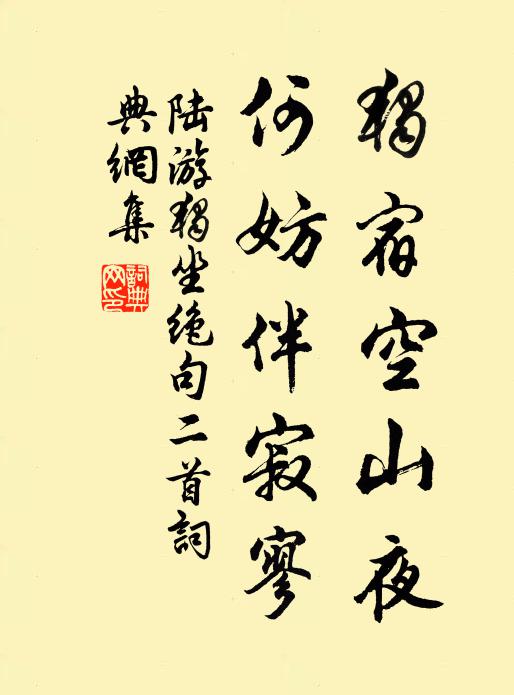 獨宿空山夜
何妨伴寂寥
陆游獨坐绝句二首詞
典網集
詞典
网印